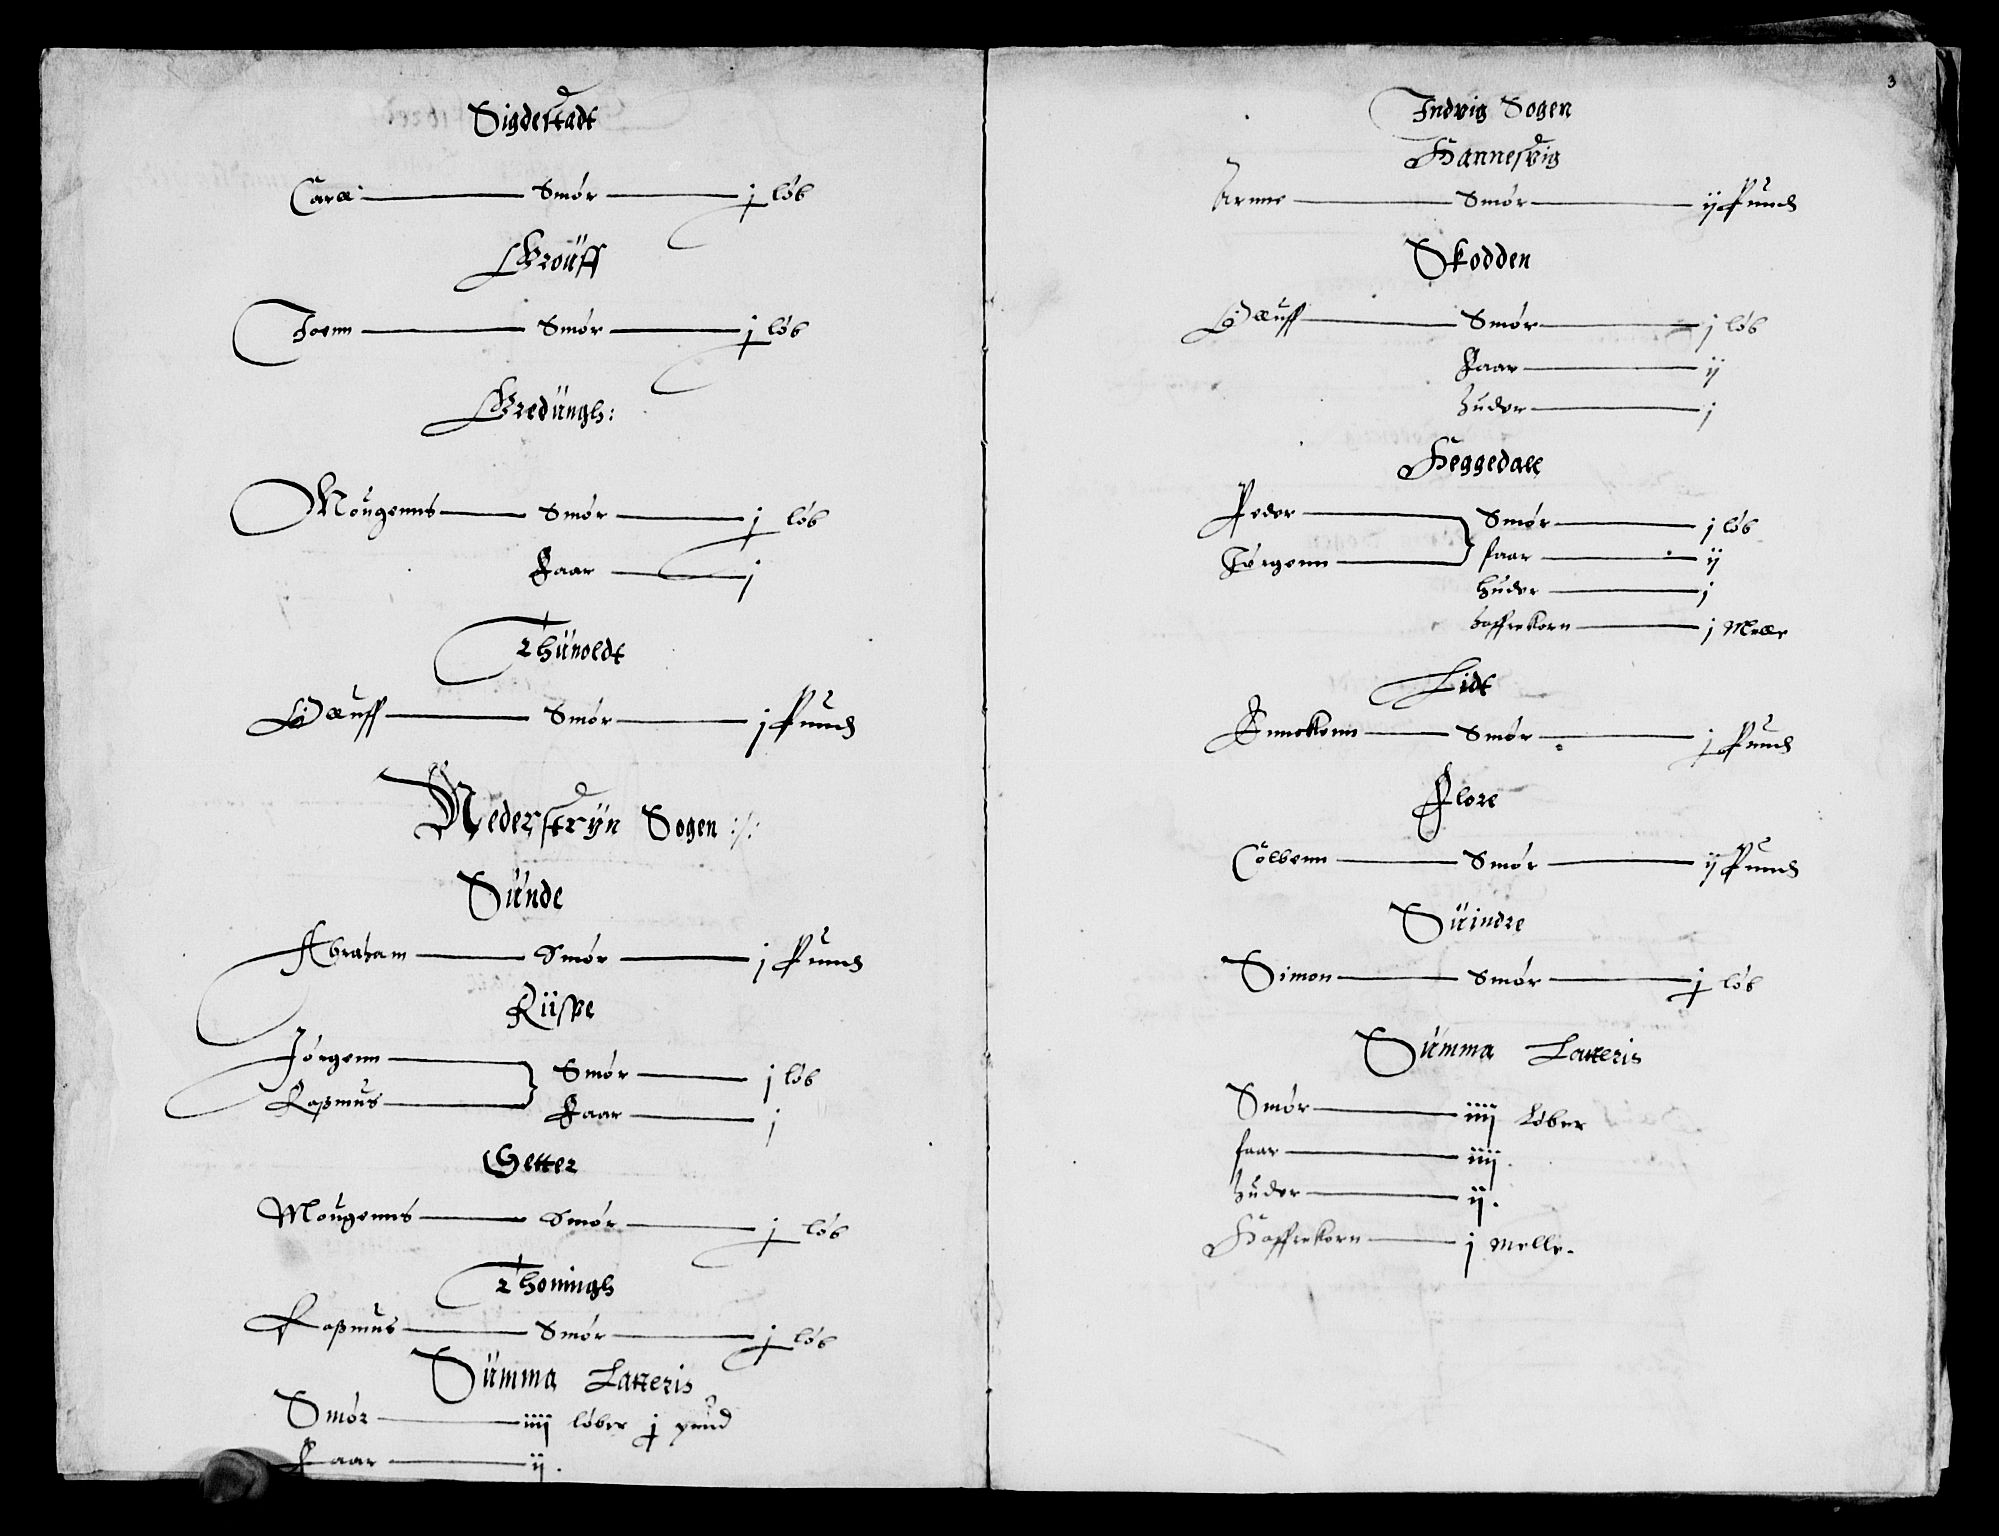 Sigdestadt
Carll — Smör — j löb
Grouff
Joenn — Smör — j löb
Gredungh:
Mougenns — Smör — j löb
Faar — j
Thunoldt
Oluff — Smör — j Pund
Nederstryn Sogen :/:
Sunde
Abraham — Smör — j Pund
Riispe
Jörgenn — Smör — j löb
Rasmus — Faar — j
Setter
Mougenns — Smör — j löb
Thoningh
Rasmus — Smör — j löb
Summa Latteris
Smör — iiij löber j pund
Faar — ij.
3
Indvig Sogen
Hannesvig
Arnne — Smör — ij Pund
Skodden
Oluff — Smör — j löb
Faar — ij
huder — j
Heggedall
Peder — Smör — j löb
Jörgenn — faar — ij
huder — j
haffrekorn — j Melle
Lidt
Smör — j Pund
Flore
Colbenn — Smör — ij Pund
Suindre
Simon — Smör — j löb
Summa Latteris
Smör — iiij Löber
faar — iiij.
huder — ij.
Haffrekorn — j Melle.